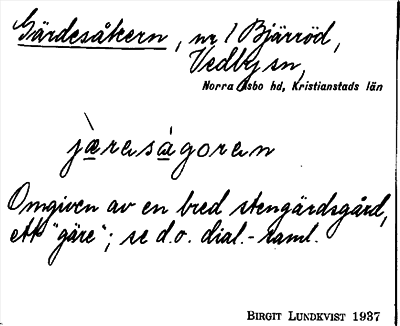 Gärdesåkern, nr 1 Bjärröd,
Vedby sn,
Norra Åsbo hd, Kristianstads län
jæresågoren
Omgiven av en bred stengärdsgård,
ett "gäre"; se d.o. dial.-saml.
BIRGIT LUNDKVIST 1937